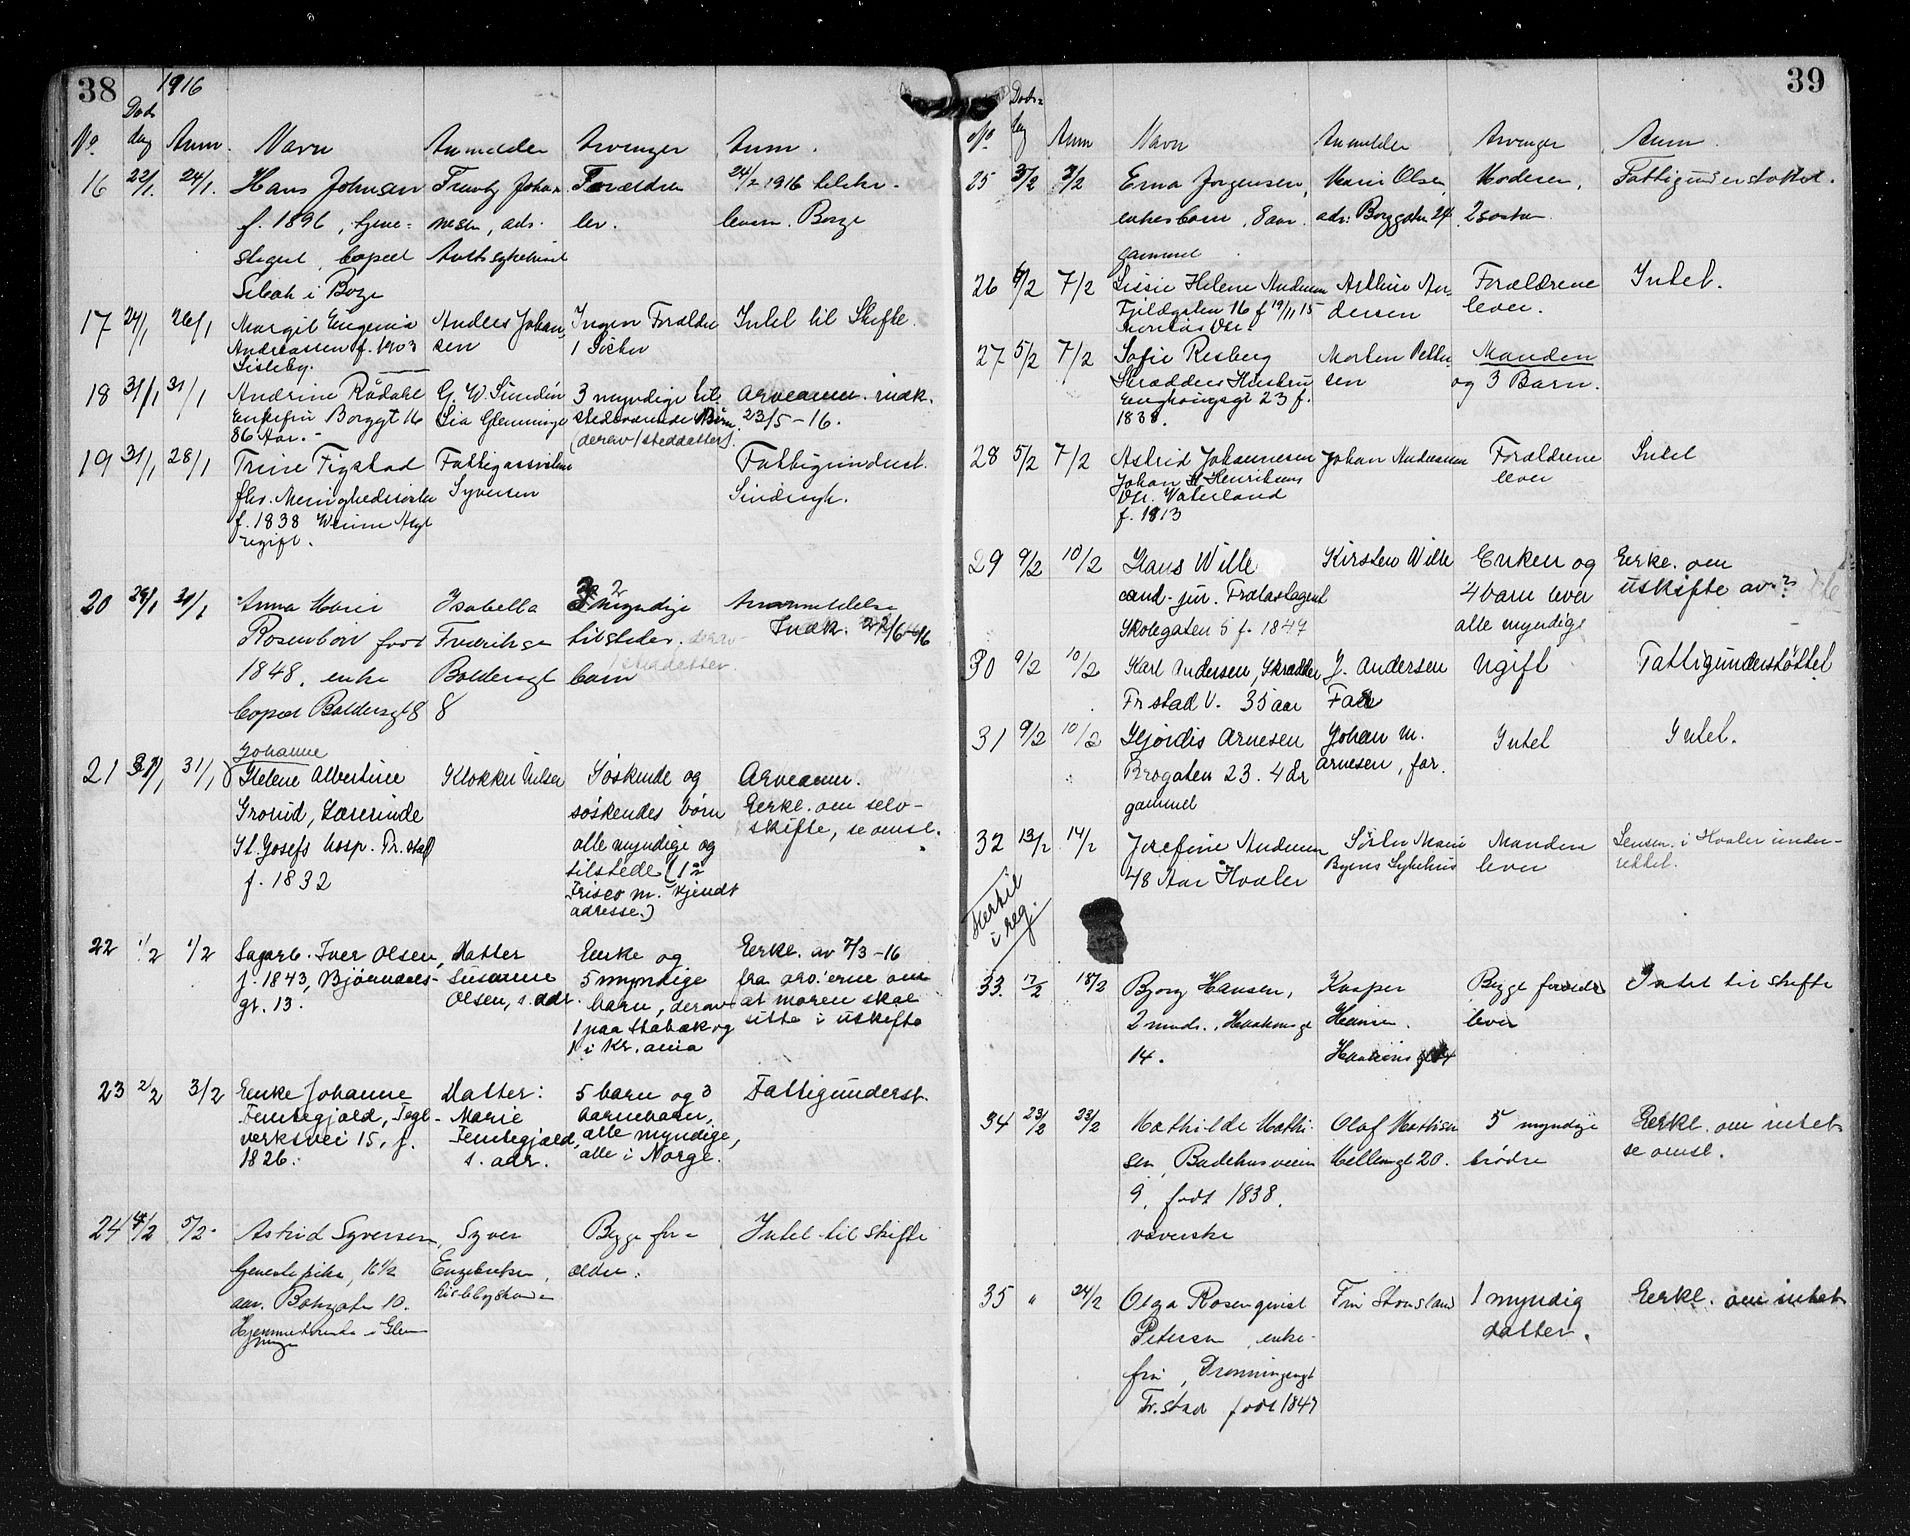 38
1916
Døds
No. dag Anm. Navn Anmelder Arvinger Anm.
16 22/1. 24/1. Hans Johnsen Johan- Forældrene 24/2 1916 tilskr.
f. 1896, tjene- nesen, ads. lev. Borge
Amtssykehuset
i Borge
17 24/1 26/1 Margit Eugenia Anders Johan- Ingen Forældre Intet til Skifte.
Andreassen f. 1903 sen 1 Søster
Lisleby.
18 31/1 31/1 Andrine Rådahl G. W. Sundin 3 myndige til- Arveanm. indk.
Enkefru Borggt 16 Lia Glemminge stedværende Børn 23/5-16.
86 Aar. - (derav 1 steddatter).
19 31/1 28/1 Trine Figstad Fattigassistent Fattigunderst.
fhv. Menighedssøster Syversen
f. 1838
ugift.
20 29/1 31/1 Anna Marie Isabella 3 myndige Anmeldelse
født Fredrikke tilstede. derav Indk. 27/6-16
1 steddatter.
1848, enke Boldersgt barn
Boldersgt 8 8
Johanne
21 31/1 31/1 Helene Albertine Klokker Nilsen Søskende og Arveanm.
Grorud, Lærerinde søskendes børn Erkl. om selv-
St. Josefs hosp. Fr.stad alle myndige og skifte, se omsl.
f. 1832 tilstede (1 i
Frisco m. kjendt
adresse.)
22 1/2 1/2 Sagarb. Iver Olsen, Datter Enke og Erkl. av 7/3-16
f. 1843, Bjørneveis- Susanne 5 myndige fra arv.erne om
gt. 13. Olsen, s. adr. barn, derav at moren skal
1 paa Stabæk og sitte i uskifte
1 i Kr.ania
23 2/2 3/2 Enke Johanne Datter: 5 barn og 3 Fattigunderst.
Femtegjæld, Tegl- Marie barnebarn,
verksvei 15, f. Femtegjæld, alle myndige,
1826. s. adr. alle i Norge.
24 4/2 5/2 Astrid Syversen, Syver Begge for- Intet til Skifte
Tjenestepike, 16 1/2 Engebretsen, ældre.
aar. 10.
Hjemmehørende i Glem-
minge
39
Døds-
No. dag Anm Navn Anmelder Arvinger Anm.
25 3/2 3/2 Erna Jørgensen, Marie Olsen, Moderen, Fattigunderstøttet.
enkes barn, 8 aar adr. Borggaten 24. 2 søstre
gammel
26 6/2 7/2 Lissie Helene Andersen Arthur An- Forældrene Intet.
Fjeldgaten 16 f 19/11 15 dersen lever.
27 5/2 7/2 Sofie Resberg Morten Petter- Manden
Skrædders Hustru sen og 3 Barn.
23 f.
1838.
28 5/2 7/2 Astrid Johannesen Johan Andreassen Forældrene Intet
Johan H. Henriksens lever
Vaterland
f. 1913
29 9/2 10/2 Hans Wille Kirsten Wille Enken og Erkl. om
cand. jur. Fratastagent 4 barn lever uskifte av ?
Skolegaten 5 f. 1849 alle myndige
30 9/2 10/2 Karl Andersen, Skrædder J. Andersen Ugift Fattigunderstøttet
Fr.stad V. 35 aar Far
31 9/2 10/2 Hjørdis Arnesen Johan M. Intet Intet.
Brogaten 23. 4 år Arnesen, far.
gammel
32 13/2 14/2 Josefine Andersen Søster Marie Manden Lensm. i Hvaler under-
48 Aar Hvaler Byens Sykehus lever rettet.
Hertil
i reg.
33. 17/2 18/2 Bjorg Hansen, Kasper Begge forældre Intet til Skifte
2 mnds., Haakonsgt Hansen. lever
14. Haakonsgt 14
34 23/2 23/2 Mathilde Mathi- Olaf Mathisen 5 myndige Erkl. om intet
sen, Badehusveien Møllergt 20. brødre se omsl.
9, født 1838.
væverske
35 " 24/2 Olga Rosenqvist Fru 1 myndig Erkl. om intet
Petersen, enke- datter.
fru, Dronningensgt
Fr.stad født 1847